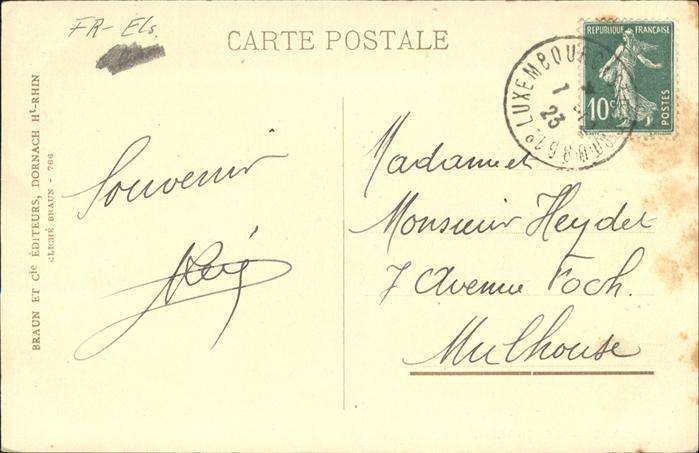 FR- Els.
CARTE POSTALE
REPUBLIQUE FRANÇAISE
10c
POSTES
LUXEMBOURG
1
23
BRAUN ET Cie ÉDITEURS, DORNACH Ht-RHIN
CLICHÉ BRAUN - 766
Souvenir
Madame et
Monsieur Heydel
7 Avenue Foch.
Mulhouse